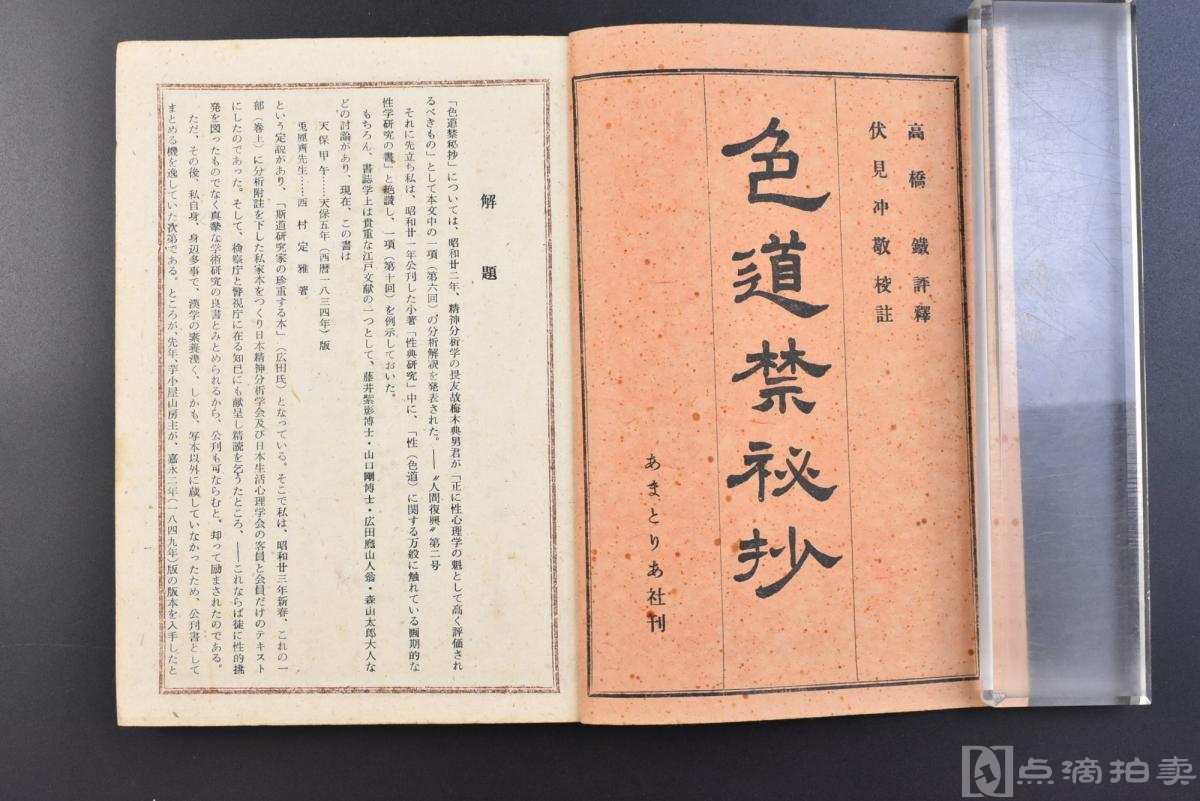 高橋鐵評釋
伏見冲敬校註
色道禁秘抄
あまとりあ社刊
解題
「色道禁秘抄」については、昭和廿二年、精神分析学の畏友故梅木典男君が「正に性心理学の魁として高く評価され
るべきもの」として本文中の一項（第六回）の分析解説を発表された。――〝人間復興〟第二号
それに先立ち私は、昭和廿一年公刊した小著「性典研究」中に、「性（色道）に関する万般に触れている画期的な
性学研究の書」と絶讃し、一項（第十回）を例示しておいた。
もちろん、書誌学上は貴重な江戸文献の一つとして、藤井紫影博士・山口剛博士・広田魔山人翁・森山太郎大人な
どの討論があり、現在、この書は
天保甲午……天保五年（西暦一八三四年）版
兎鹿齊先生……西村定雅著
という定説があり、「斯道研究家の珍重する本」（広田氏）となっている。そこで私は、昭和廿三年新春、これの一
部（巻上）に分析附註を下した私家本をつくり日本精神分析学会及び日本生活心理学会の客員と会員だけのテキスト
にしたのであった。そして、検察庁と警視庁に在る知已にも献呈し精読を乞うたところ、――これならば徒に性的挑
発を図ったものでなく真摯な学術研究の良書とみとめられるから、公刊も可ならむと、却って励まされたのである。
ただ、その後、私自身、身辺多事で、漢学の素養浅く、しかも、写本以外に蔵していなかったため、公刊書として
まとめる機を逸していた次第である。ところが、先年、芋小屋山房主が、嘉永二年（一八四九年）版の版本を入手したと
点滴拍卖